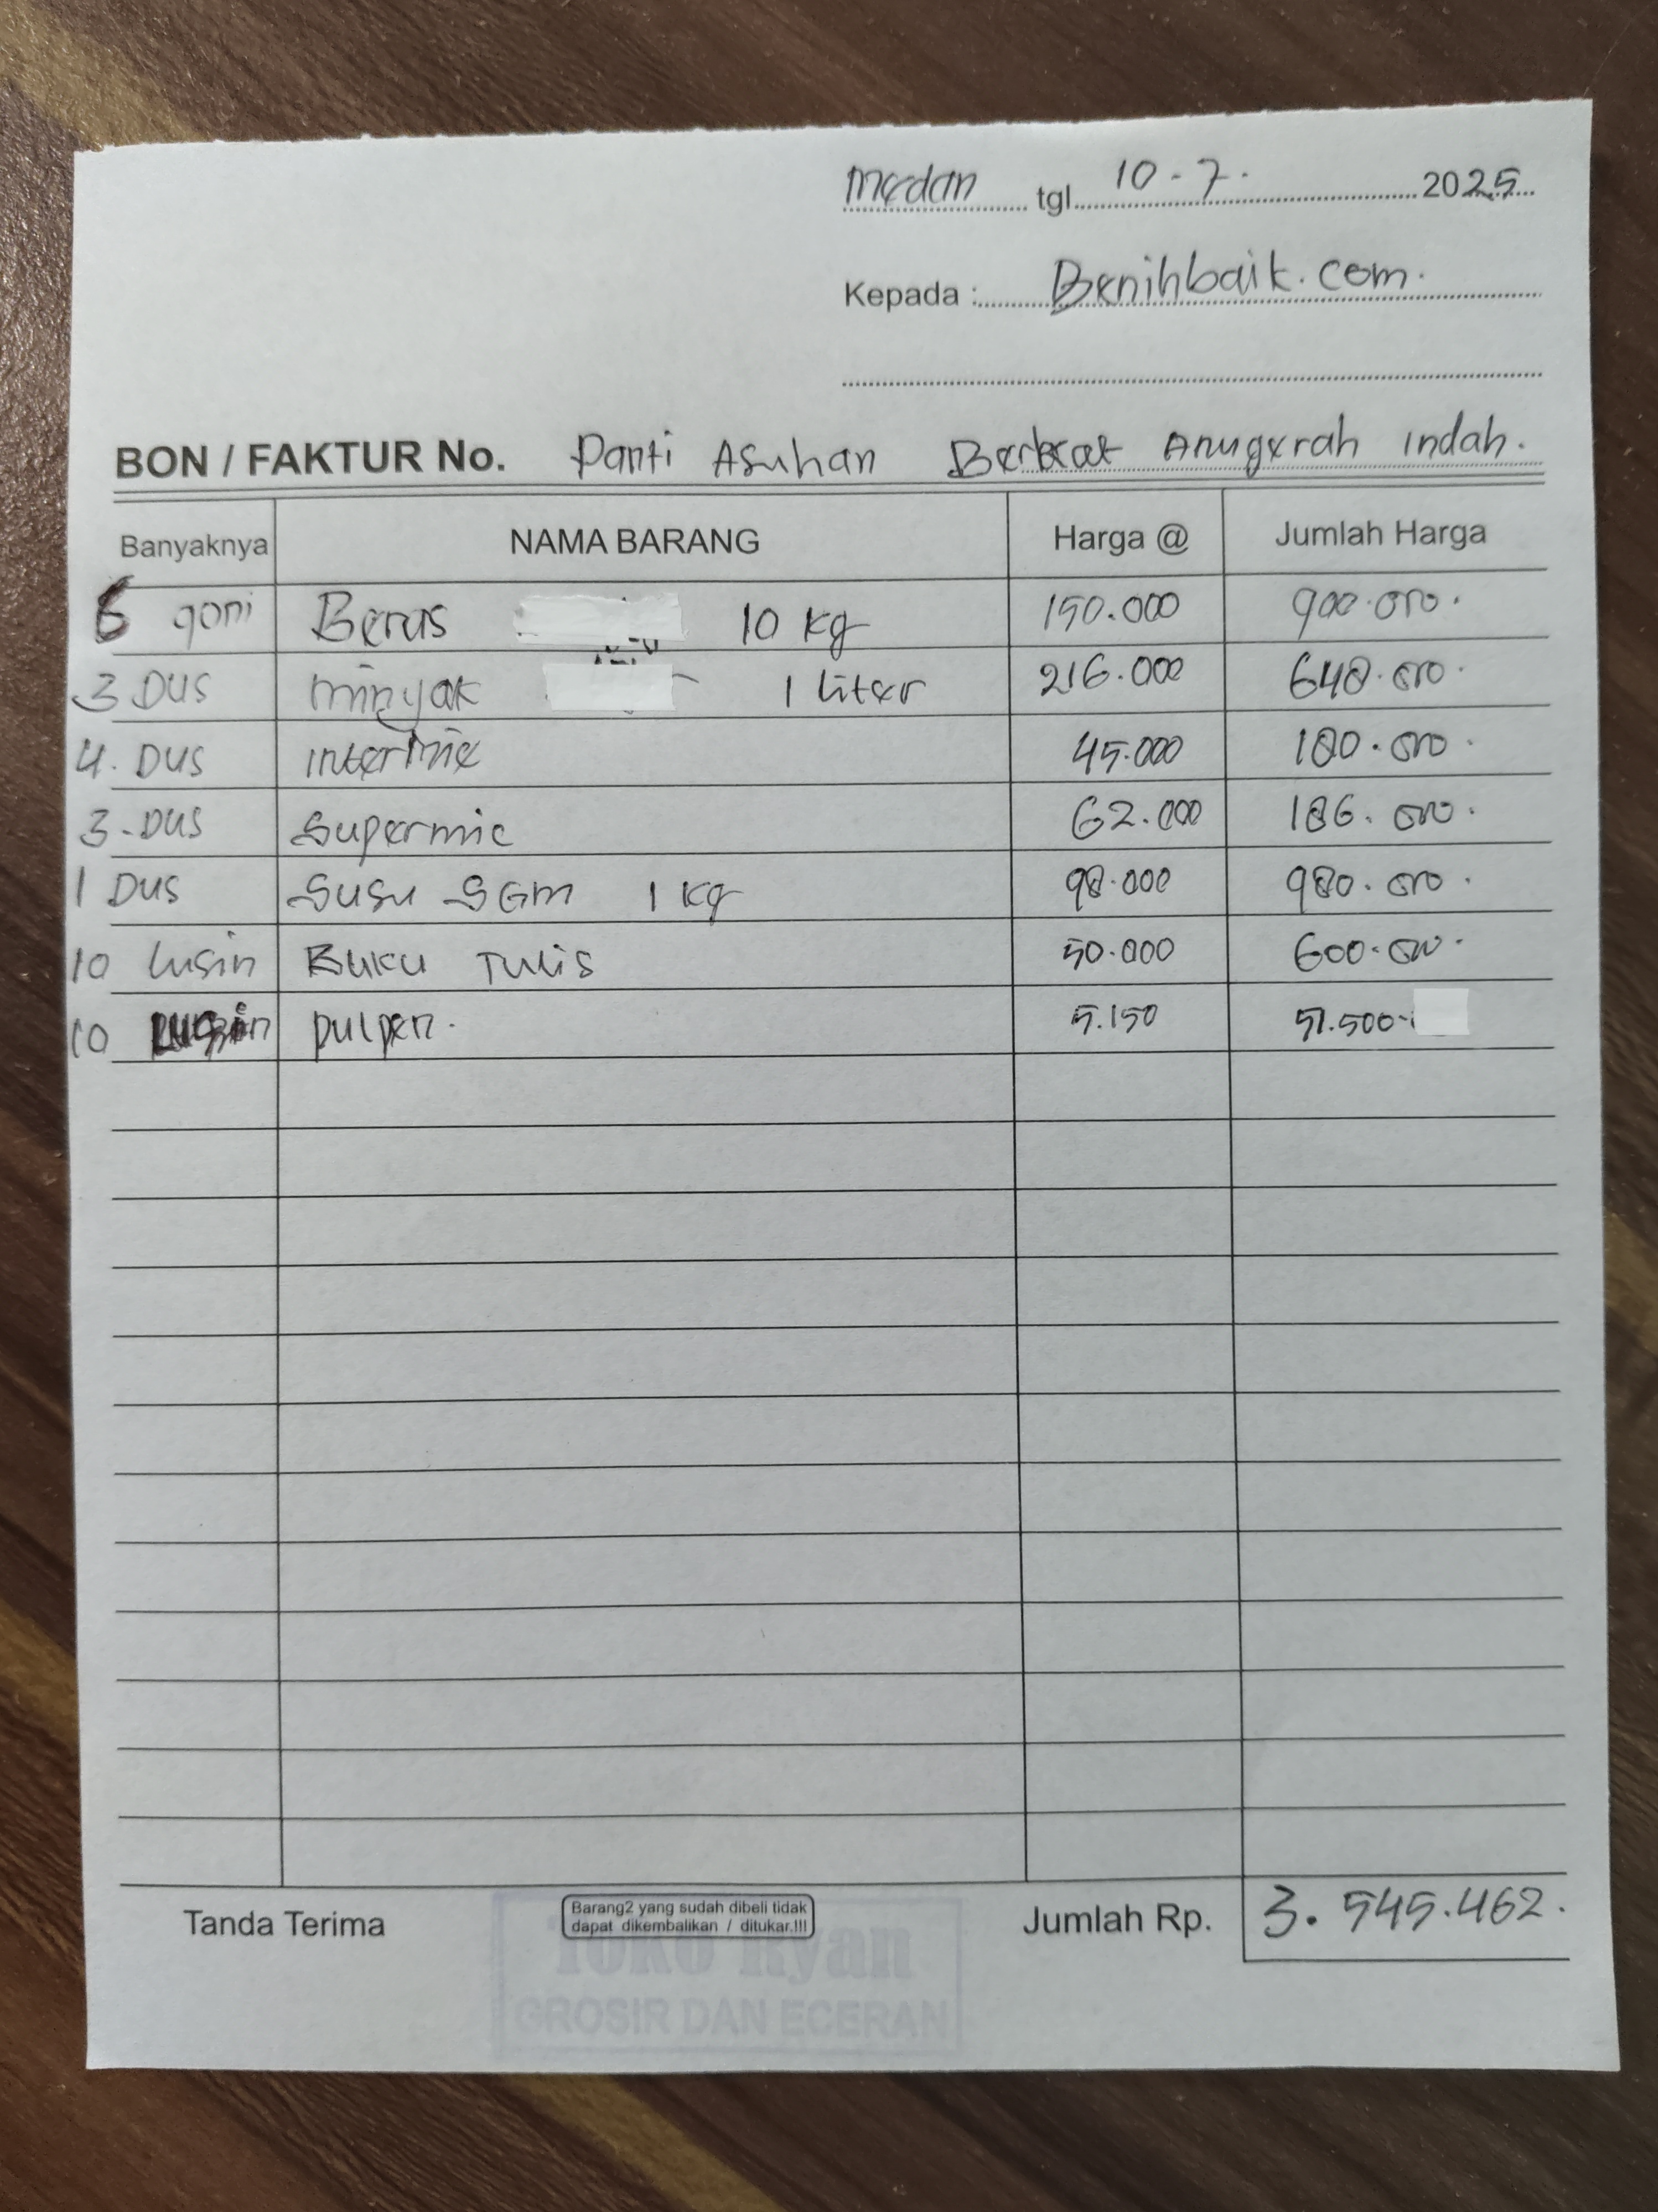 Medan tgl. 10-7. 2025
Kepada : Benihbaik.com.
BON / FAKTUR No. Panti Asuhan Berkat Anugerah Indah.
Banyaknya NAMA BARANG Harga @ Jumlah Harga
6 goni Beras 10 kg 150.000 900.000.
3 DUS Minyak 1 liter 216.000 648.000.
4. DUS Intermie 45.000 180.000.
3-DUS Supermie 62.000 186.000.
1 DUS Susu SGM 1 Kg 98.000 980.000.
10 lusin Buku Tulis 50.000 600.000.
10 pulpen. 5.150 51.500-
Tanda Terima Barang2 yang sudah dibeli tidak dapat dikembalikan / ditukar.!!! Jumlah Rp. 3.545.462.
Toko Ryan
GROSIR DAN ECERAN